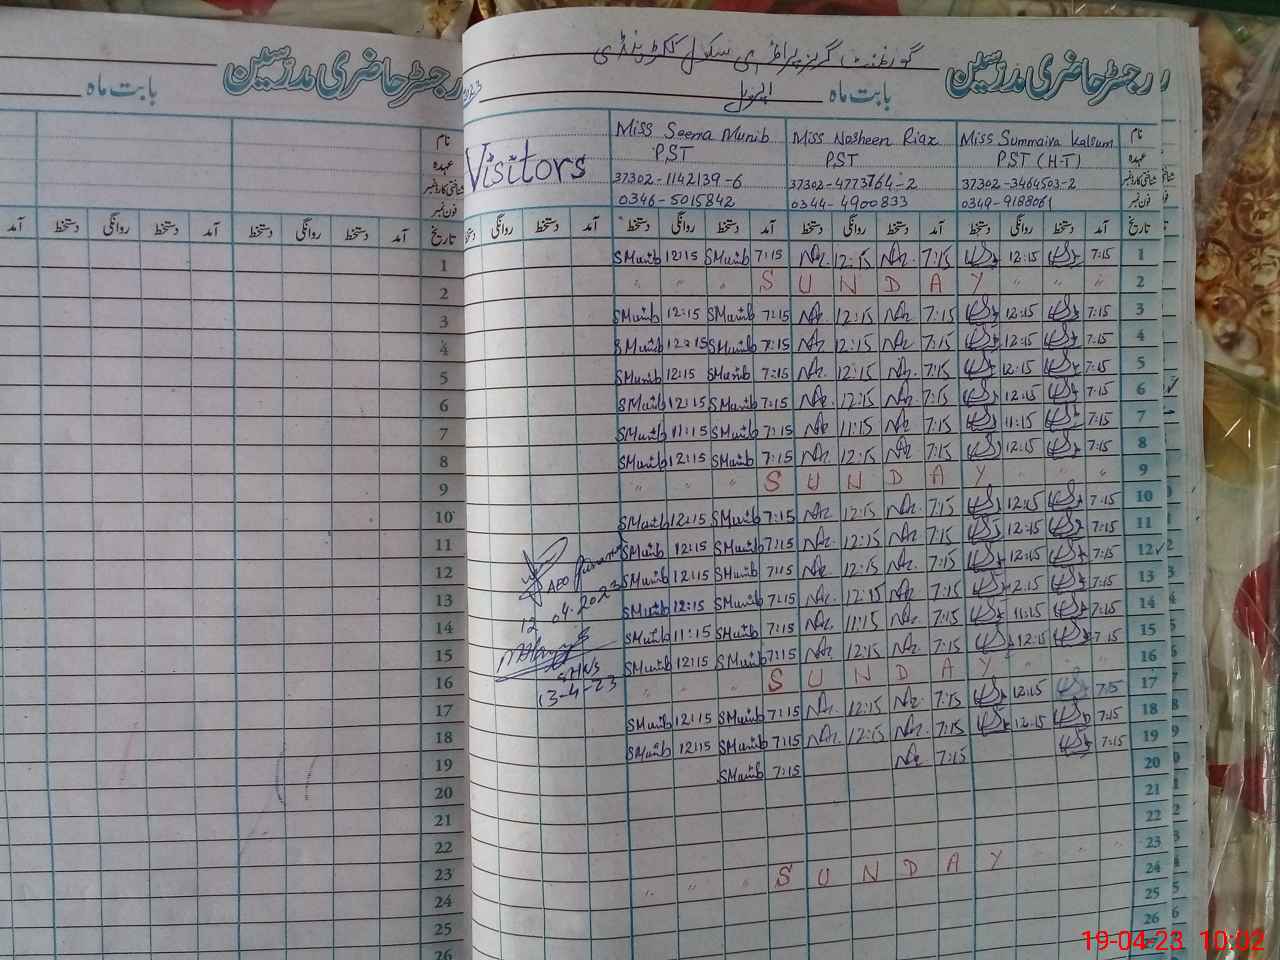 رجسٹر حاضری مدرسین گورنمنٹ گرلز پرائمری سکول
بابت ماہ اپریل 2023
رجسٹر حاضری مدرسین
بابت ماہ
نام Miss Summaiya Kalsum Miss Nosheen Riaz Miss Seema Munib
عہدہ PST (H.T) PST PST Visitors
شناختی کارڈ نمبر 37302-3464503-2 37302-4773764-2 37302-1142139-6
فون نمبر 0349-9188061 0344-4900833 0346-5015842
تاریخ آمد دستخط روانگی دستخط آمد دستخط روانگی دستخط آمد دستخط روانگی دستخط آمد دستخط روانگی دستخط
1 7:15 12:15 7:15 Naz 12:15 Naz 7:15 SMunib 12:15 SMunib
2 S U N D A Y
3 7:15 12:15 7:15 Naz 12:15 Naz 7:15 SMunib 12:15 SMunib
4 7:15 12:15 7:15 Naz 12:15 Naz 7:15 SMunib 12:15 SMunib
5 7:15 12:15 7:15 Naz 12:15 Naz 7:15 SMunib 12:15 SMunib
6 7:15 12:15 7:15 Naz 12:15 Naz 7:15 SMunib 12:15 SMunib
7 7:15 11:15 7:15 Naz 11:15 Naz 7:15 SMunib 11:15 SMunib
8 7:15 12:15 7:15 Naz 12:15 Naz 7:15 SMunib 12:15 SMunib
9 S U N D A Y
10 7:15 12:15 7:15 Naz 12:15 Naz 7:15 SMunib 12:15 SMunib
11 7:15 12:15 7:15 Naz 12:15 Naz 7:15 SMunib 12:15 SMunib
12 7:15 12:15 7:15 Naz 12:15 Naz 7:15 SMunib 12:15 SMunib
13 7:15 12:15 7:15 Naz 12:15 Naz 7:15 SMunib 12:15 SMunib
14 7:15 11:15 7:15 Naz 11:15 Naz 7:15 SMunib 11:15 SMunib
15 7:15 12:15 7:15 Naz 12:15 Naz 7:15 SMunib 12:15 SMunib
16 S U N D A Y
17 7:15 12:15 7:15 Naz 12:15 Naz 7:15 SMunib 12:15 SMunib
18 7:15 12:15 7:15 Naz 12:15 Naz 7:15 SMunib 12:15 SMunib
19 7:15 7:15 Naz 7:15 SMunib
20
21
22
23 S U N D A Y
24
25
26
12-04-2023
13-4-23
نام
عہدہ
شناختی کارڈ نمبر
فون نمبر
تاریخ آمد دستخط روانگی دستخط آمد دستخط روانگی دستخط آمد
1
2
3
4
5
6
7
8
9
10
11
12
13
14
15
16
17
18
19
20
21
22
23
24
25
26
19-04-23 10:02